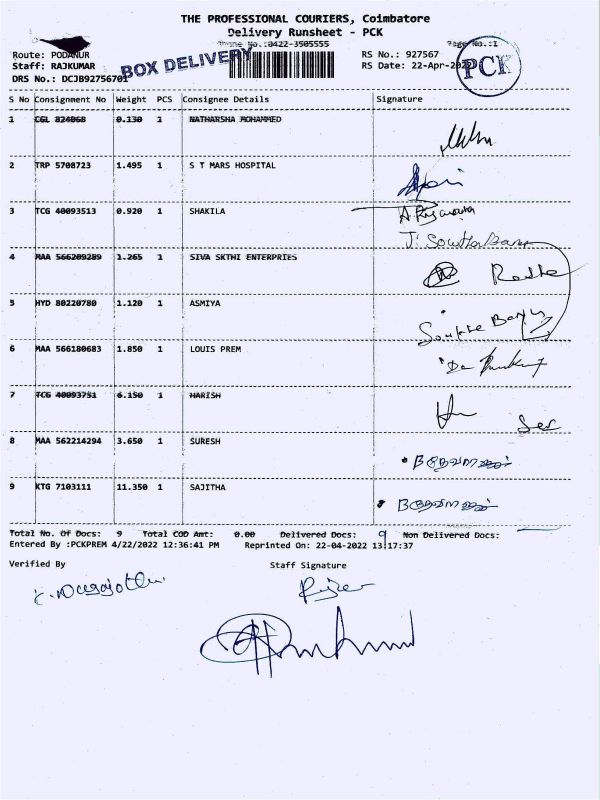 THE PROFESSIONAL COURIERS, Coimbatore
Delivery Runsheet - PCK
Phone No.:0422-3505555
Page No.:1
Route: PODANUR
Staff: RAJKUMAR
DRS No.: DCJB92756701
BOX DELIVERY
RS No.: 927567
RS Date: 22-Apr-2022
PCK
S No Consignment No Weight PCS Consignee Details Signature
1 CGL 824068 0.130 1 NATHARSHA MOHAMMED
2 TRP 5708723 1.495 1 S T MARS HOSPITAL
3 TCG 40093513 0.920 1 SHAKILA
4 MAA 566209289 1.265 1 SIVA SKTHI ENTERPRIES
Radha
5 HYD 80220780 1.120 1 ASMIYA
6 MAA 566180683 1.850 1 LOUIS PREM
7 TCG 40093751 6.150 1 HARISH
8 MAA 562214294 3.650 1 SURESH
9 KTG 7103111 11.350 1 SAJITHA
Total No. Of Docs: 9 Total COD Amt: 0.00 Delivered Docs: 9 Non Delivered Docs:
Entered By :PCKPREM 4/22/2022 12:36:41 PM Reprinted On: 22-04-2022 13:17:37
Verified By Staff Signature